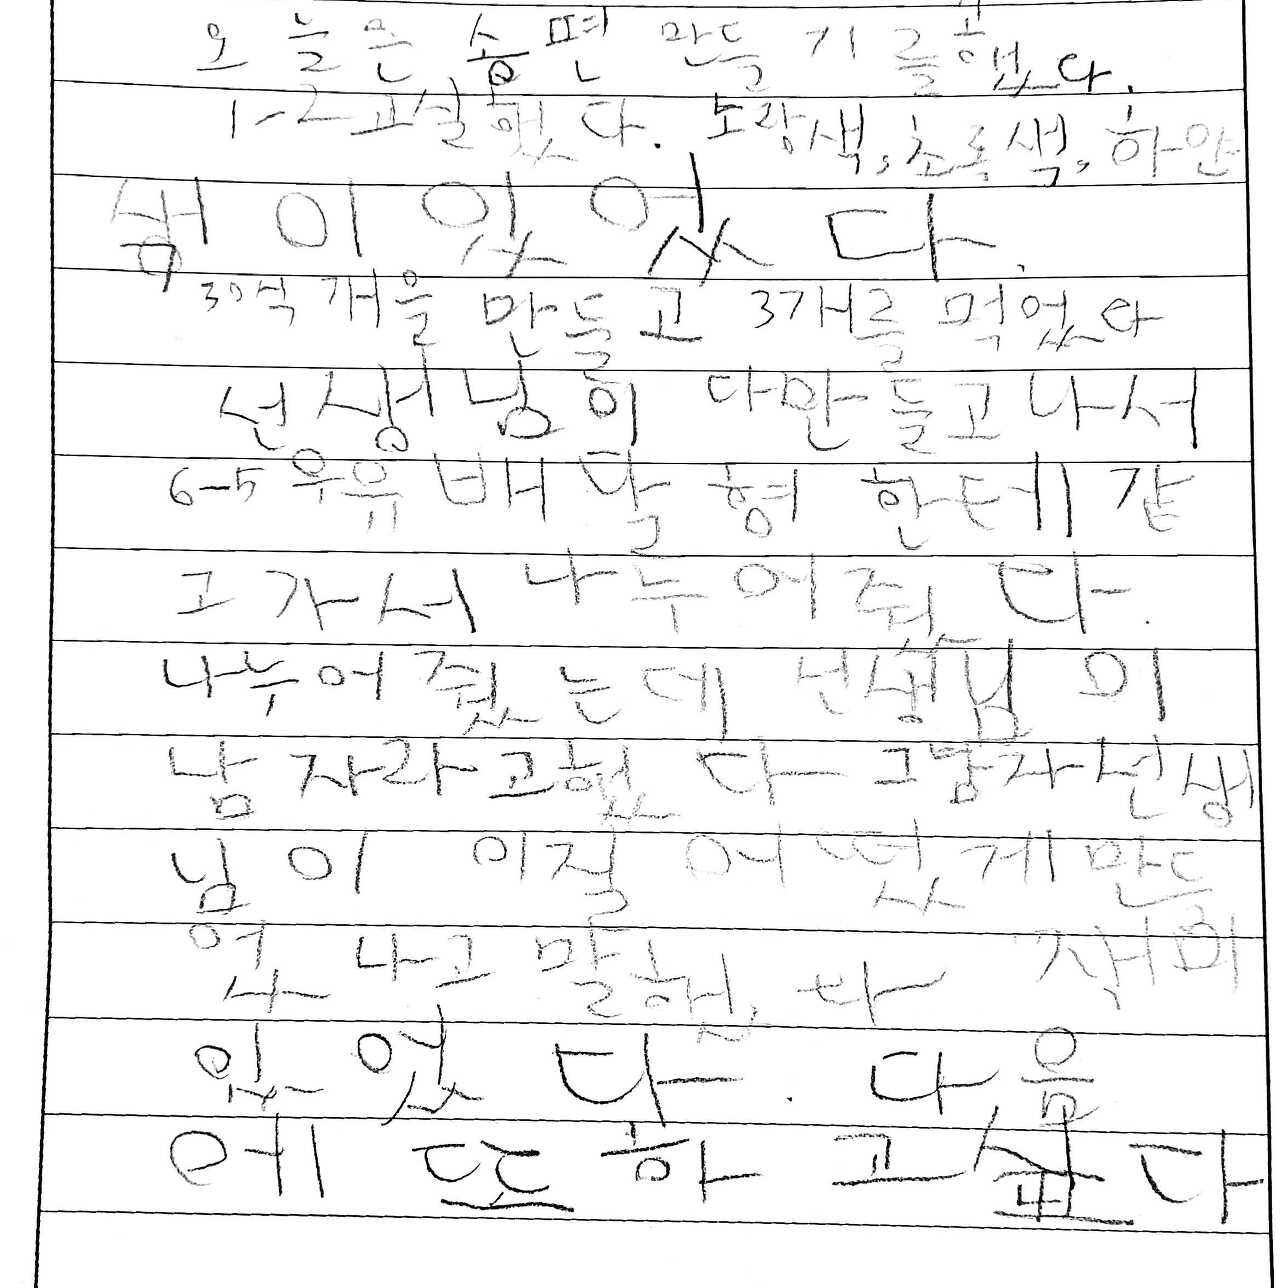 오늘은 송편 만들기를 했다.
1-2교실했다. 노랑색, 초록색, 하얀
색이 있었다.
30식 개을 만들고 3개를 먹었다
선생님이 다만들고나서
6-5 우유배달 형 한테 갇
고 가서 나누어줬다.
나누어 줬는데 선생님이
남자라고했다 그남자선생
님이 이질 어떴게 만드
었나고 말했다 재미
있었다. 다음
에 또 하고 싶다